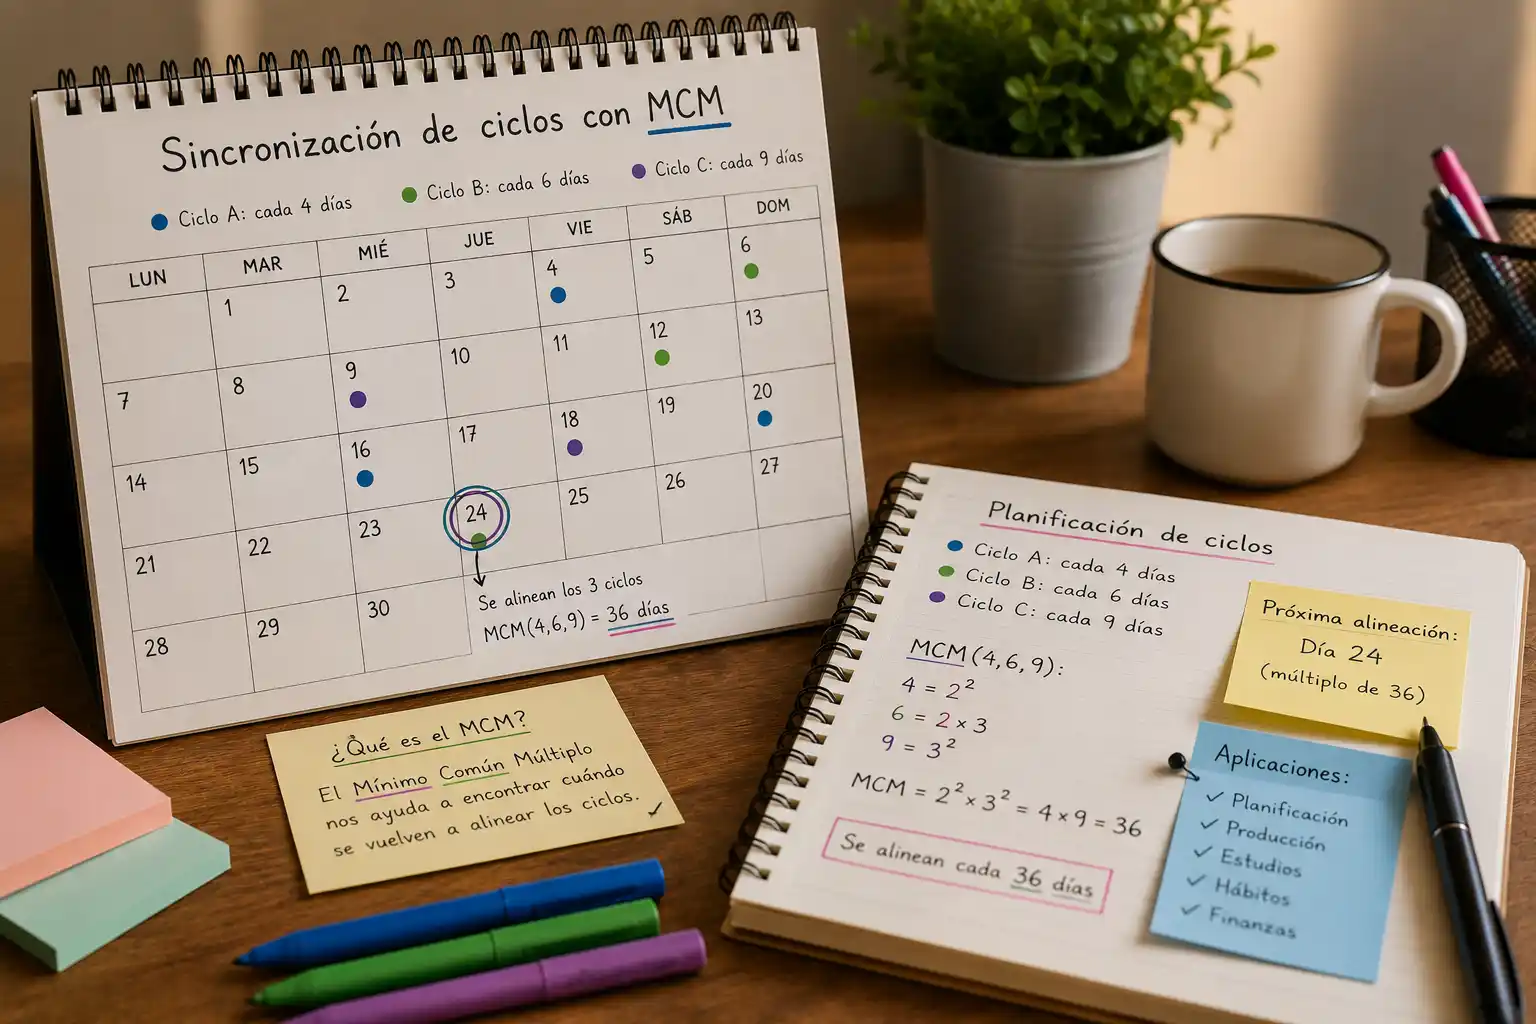 Sincronización de ciclos con MCM
Ciclo A: cada 4 días
Ciclo B: cada 6 días
Ciclo C: cada 9 días
LUN MAR MIÉ JUE VIE SÁB DOM
1 2 3 4 5 6
7 8 9 10 11 12 13
14 15 16 17 18 19 20
21 22 23 24 25 26 27
28 29 30
Se alinean los 3 ciclos
MCM(4,6,9) = 36 días
¿Qué es el MCM?
El Mínimo Común Múltiplo
nos ayuda a encontrar cuándo
se vuelven a alinear los ciclos.
Planificación de ciclos
Ciclo A: cada 4 días
Ciclo B: cada 6 días
Ciclo C: cada 9 días
MCM(4,6,9):
4 = 2²
6 = 2 × 3
9 = 3²
MCM = 2² × 3² = 4 × 9 = 36
Se alinean cada 36 días
Próxima alineación:
Día 24
(múltiplo de 36)
Aplicaciones:
✓ Planificación
✓ Producción
✓ Estudios
✓ Hábitos
✓ Finanzas